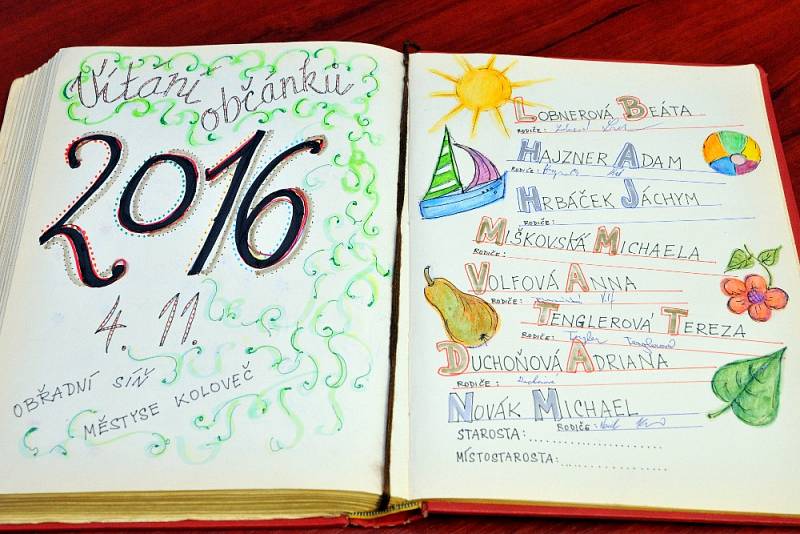 Vítání
občánků
2016
4. 11.
OBŘADNÍ SÍŇ
MĚSTYSE KOLOVEČ
LOBNEROVÁ BEÁTA
RODIČE:
HAJZNER ADAM
RODIČE:
HRBÁČEK JÁCHYM
RODIČE:
MIŠKOVSKÁ MICHAELA
RODIČE:
VOLFOVÁ ANNA
RODIČE:
TENGLEROVÁ TEREZA
RODIČE: Tengler Tenglerová
DUCHOŇOVÁ ADRIANA
RODIČE:
NOVÁK MICHAEL
RODIČE:
STAROSTA:....................
MÍSTOSTAROSTA:................